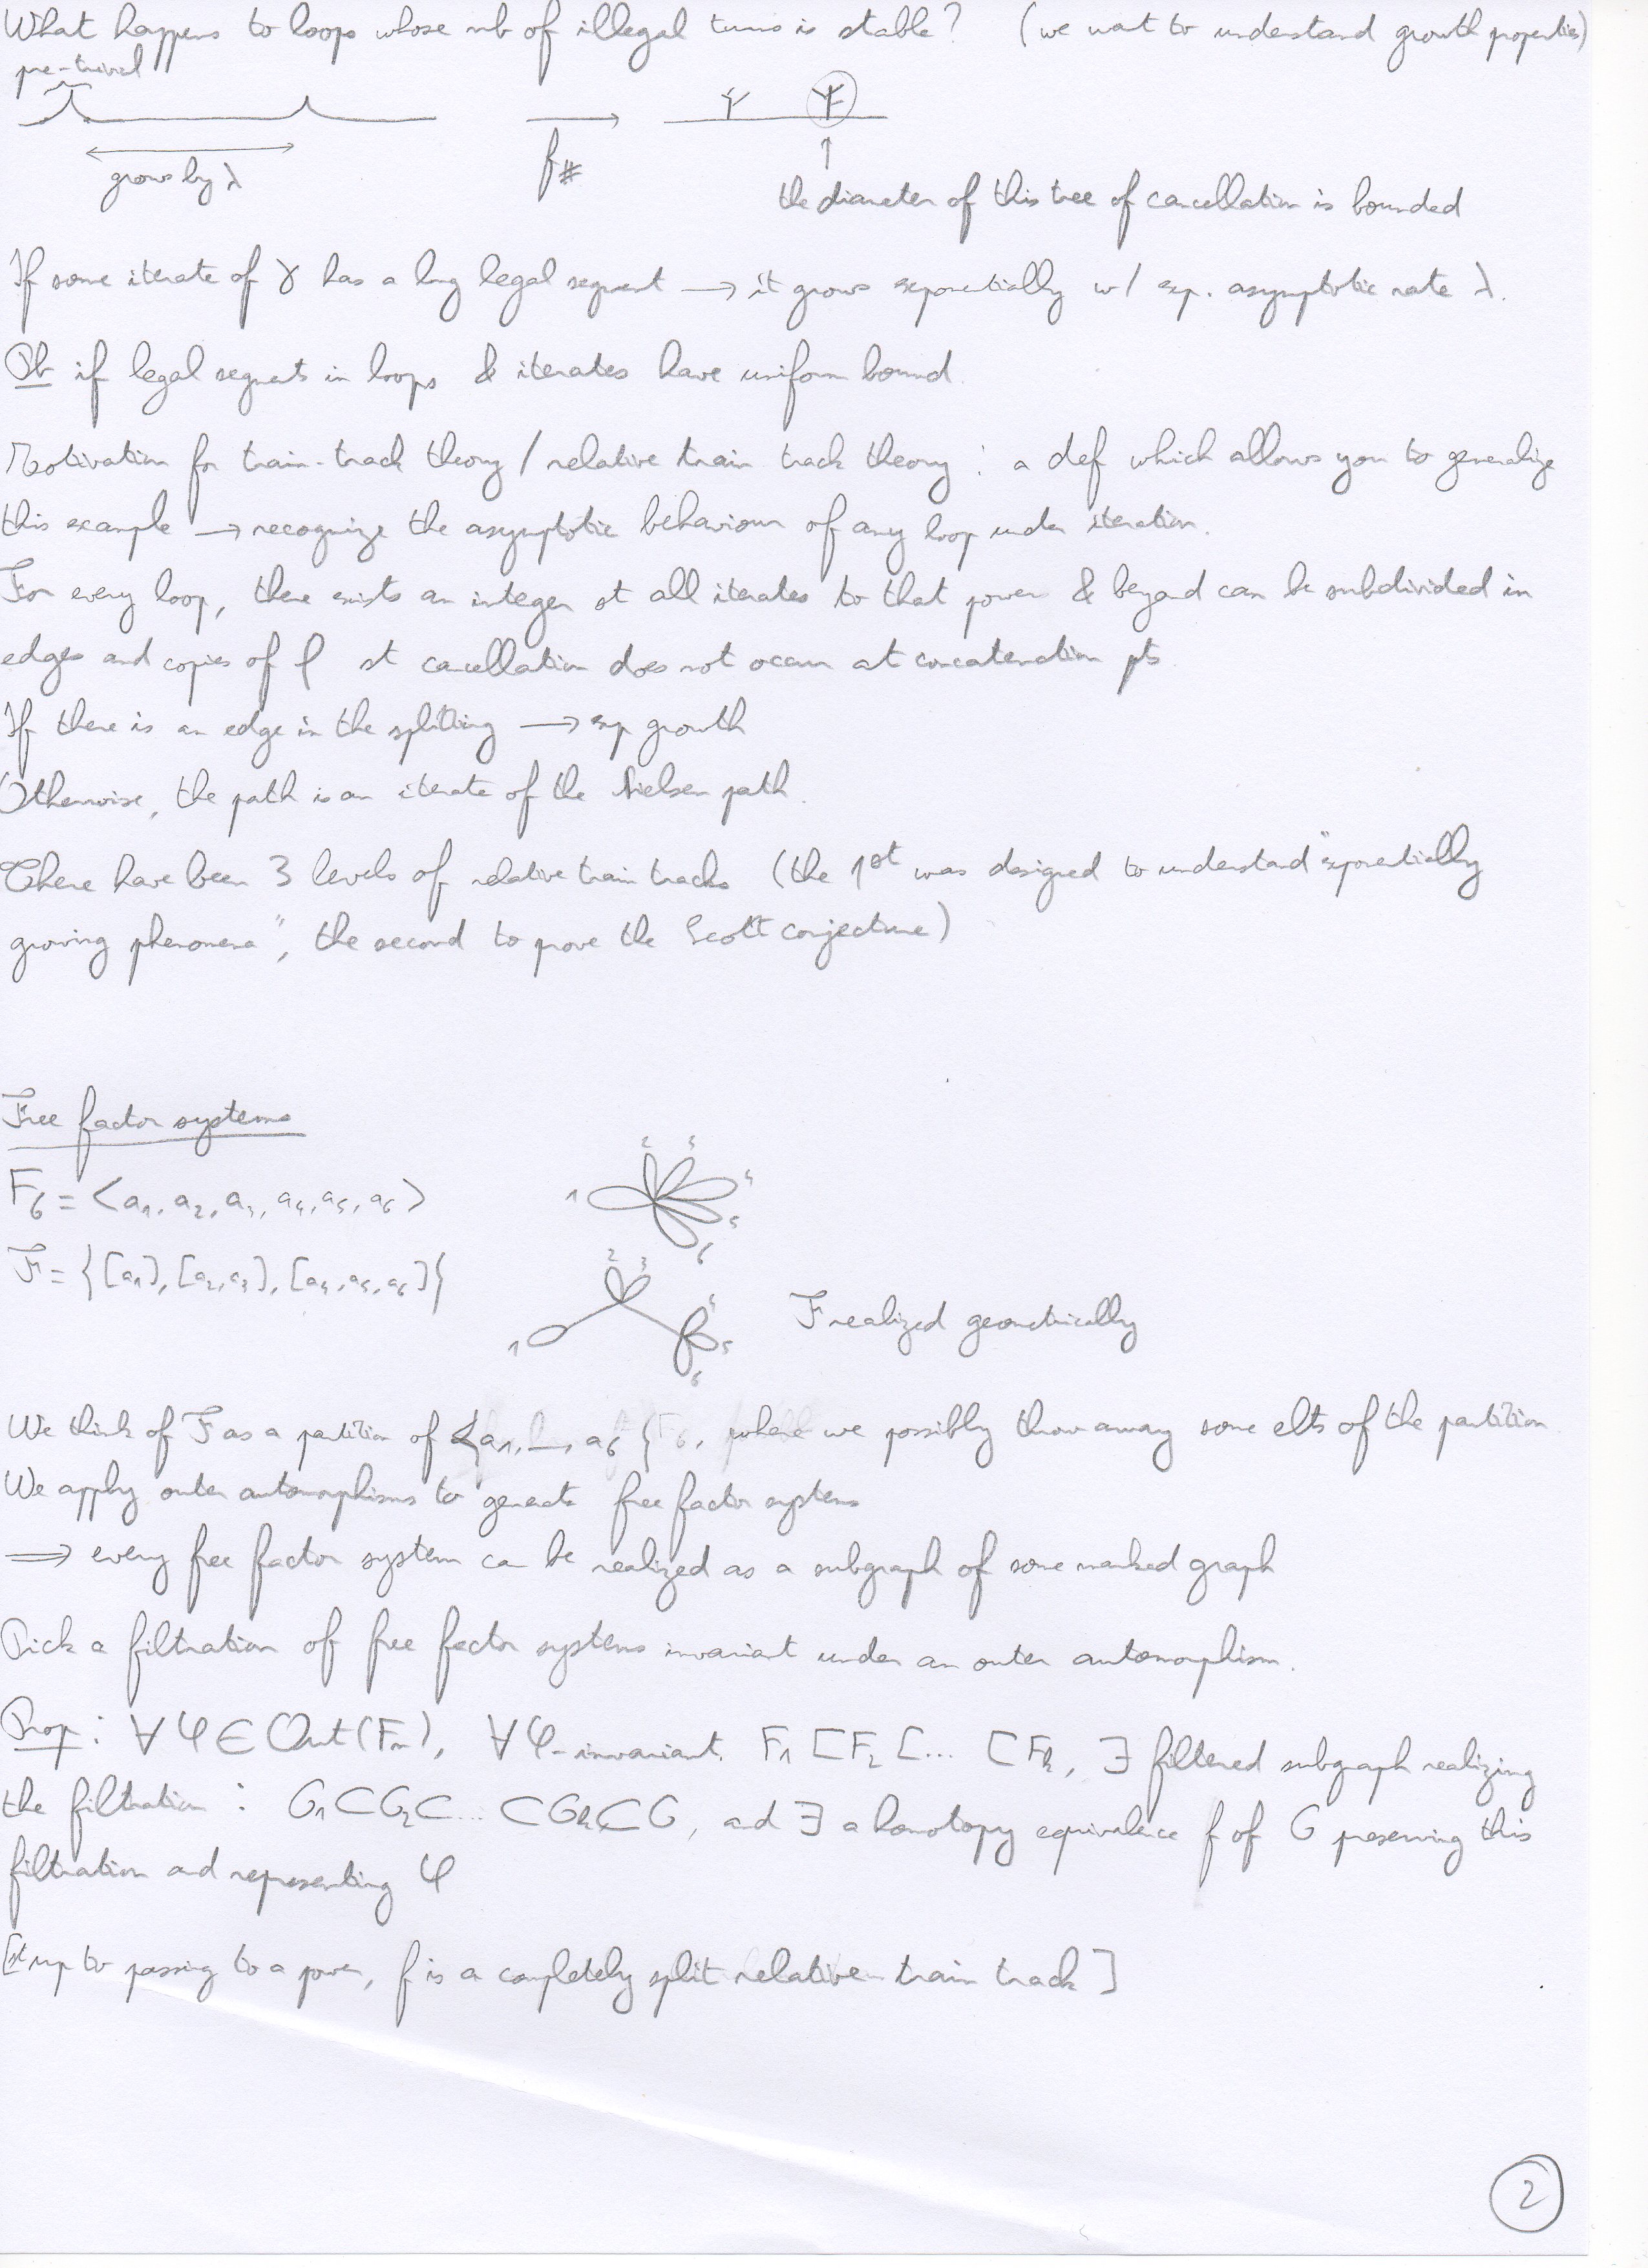 What happens to loops whose nb of illegal turns is stable? (we want to understand growth properties)
pre-trivial
grows by λ
f#
the diameter of this tree of cancellation is bounded
If some iterate of γ has a long legal segment → it grows exponentially w/ exp. asymptotic rate λ.
Pb if legal segments in loops & iterates have uniform bound.
Motivation for train-track theory / relative train track theory : a def which allows you to generalize
this example → recognize the asymptotic behaviour of any loop under iteration.
For every loop, there exists an integer st all iterates to that power & beyond can be subdivided in
edges and copies of ρ st cancellation does not occur at concatenation pts
If there is an edge in the splitting → exp growth
Otherwise, the path is an iterate of the Nielsen path.
There have been 3 levels of relative train tracks (the 1st was designed to understand "exponentially
growing phenomena", the second to prove the Scott conjecture)
Free factor systems
F6 = <a1, a2, a3, a4, a5, a6>
1 2 3 4 5 6
F = {[a1], [a2, a3], [a4, a5, a6]}
1 2 3 4 5 6
F realized geometrically
We think of F as a partition of {a1, ..., a6}, where we possibly throw away some elts of the partition
We apply outer automorphisms to generate free factor systems
⟹ every free factor system can be realized as a subgraph of some marked graph
Pick a filtration of free factor systems invariant under an outer automorphism.
Prop : ∀ φ ∈ Out(Fn), ∀ φ-invariant F1 ⊏ F2 ⊏ ... ⊏ Fk, ∃ filtered subgraph realizing
the filtration : G1 ⊂ G2 ⊂ ... ⊂ Gk ⊂ G, and ∃ a homotopy equivalence f of G preserving this
filtration and representing φ
[st up to passing to a power, f is a completely split relative train track]
2